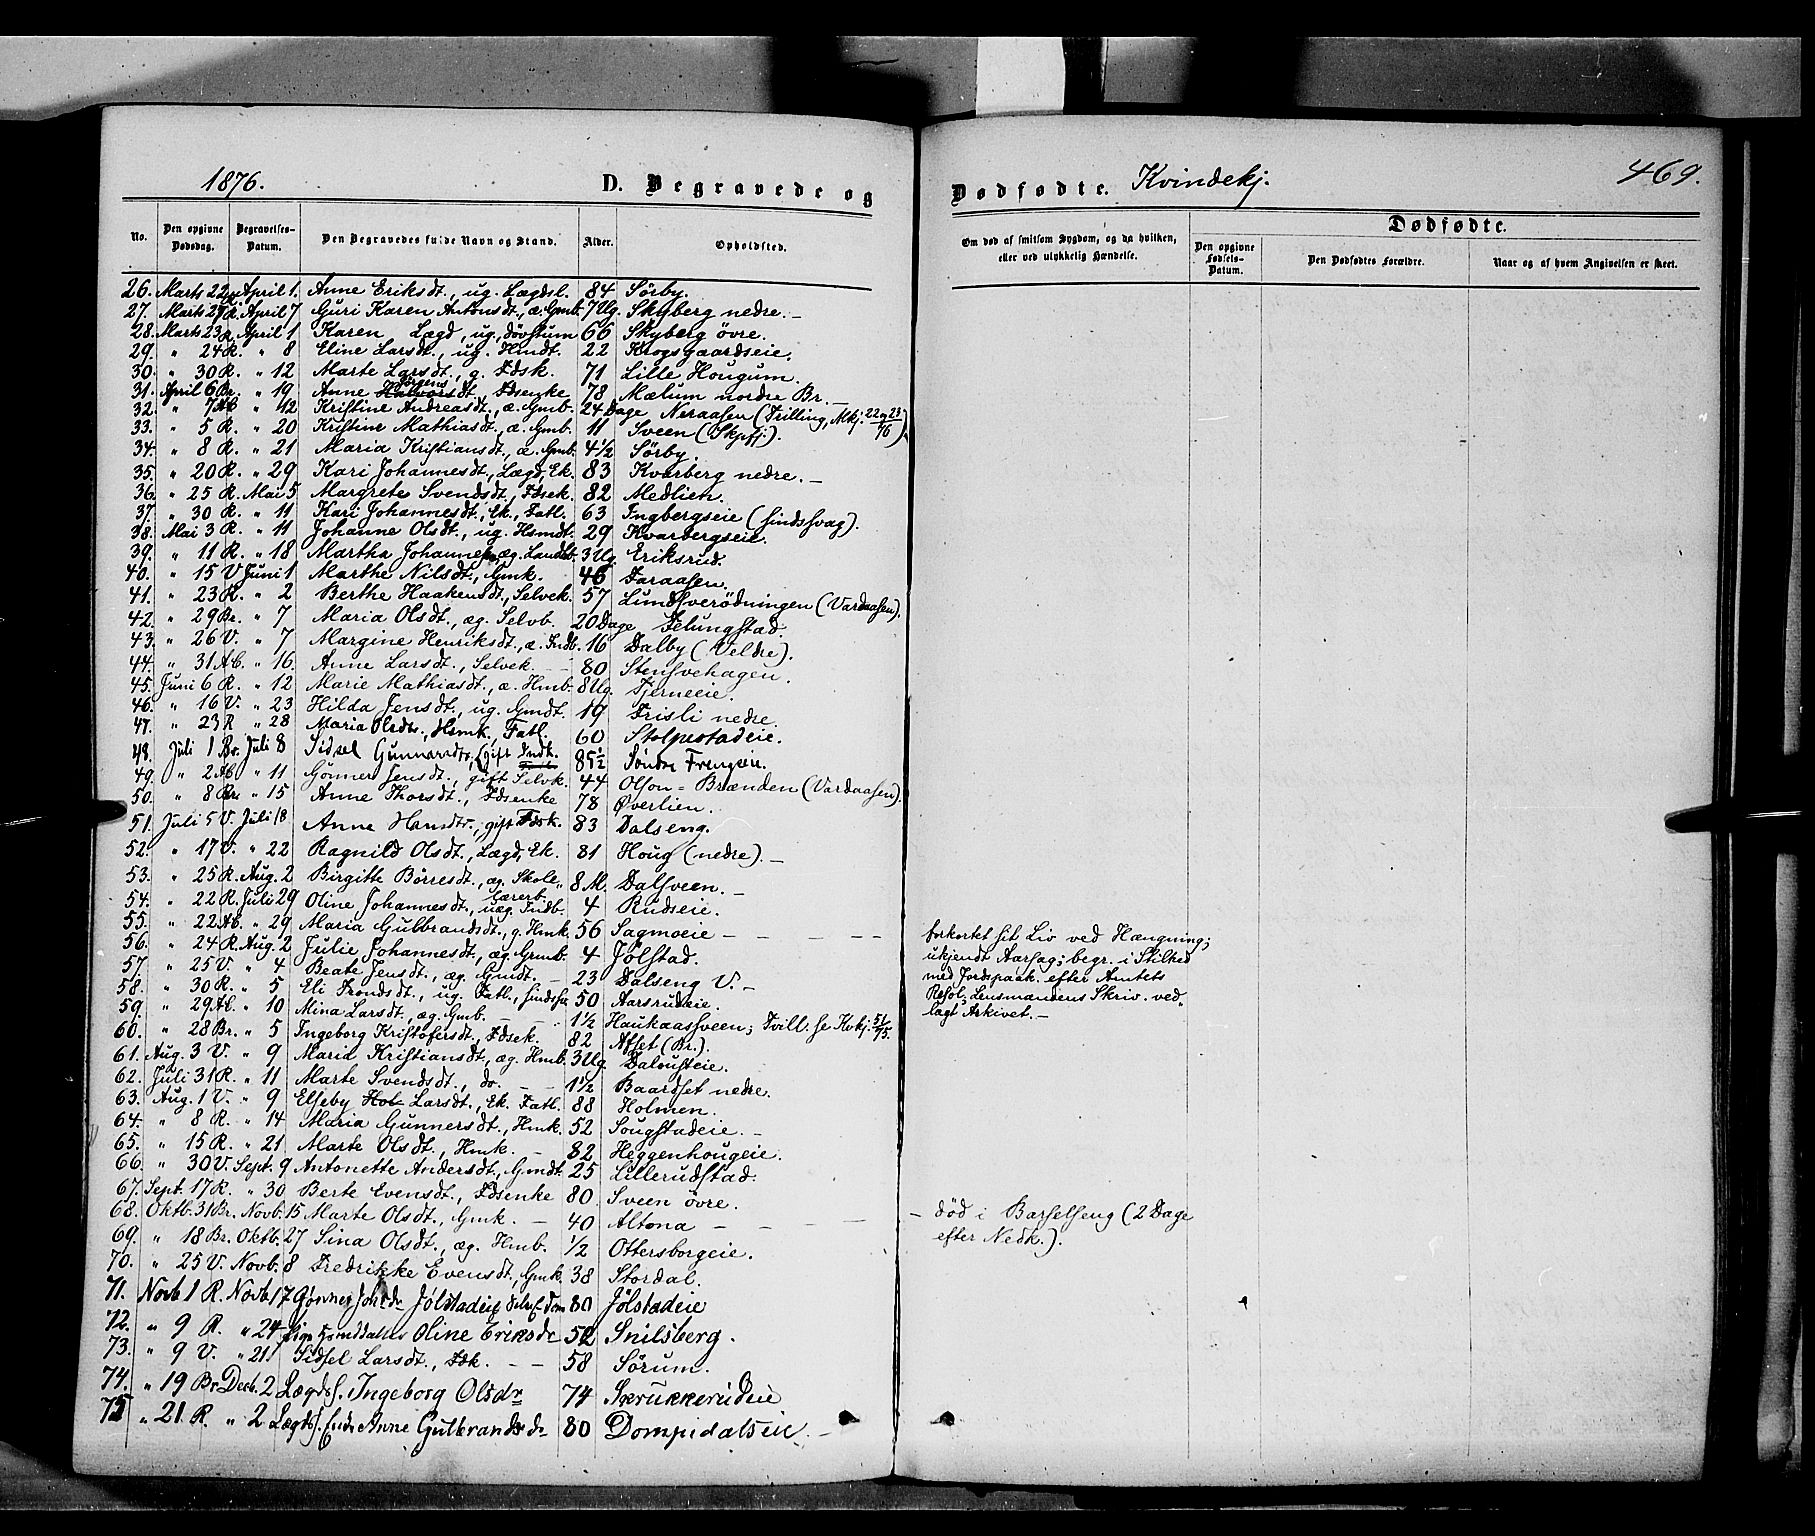 1876. D. Begravede og
No. Den opgivne Dødsdag. Begravelses-Datum. Den Begravedes fulde Navn og Stand. Alder. Opholdsted.
26. Marts 22 April 1. Anne Eriksdt., ug. Lægdsl. 84 Sörby.
27. Marts 27 R. April 7 Guri Karen Antonsdt., æ. Gmb. 7 Ug. Skyberg nedre. –
28. Marts 23 R. April 1 Karen Lægd, ug. døvstum 66 Skyberg övre.
29. " 24 R. " 8 Eline Larsdt., ug. Hmdt. 22 Krogsgaardseie.
30. " 30 R. " 12 Marte Larsdt., g. Fdsk. 71 Lille Hougum.
31. April 6 Br. " 19 Anne Jörgensdt. Fdsenke 78 Mælum nordre Br. –
32. " 7 Ab " 12 Kristine Andreasdt., æ. Gmb. 24 Dage Neraasen (Trilling, Mkj. 22 og 23/76)
33. " 5 R. " 20 Kristine Mathiasdt., æ. Gmb. 11 Sveen (Skpfj.).
34. " 8 R. " 21 Maria Kristiansdt., æ. Gmb. 4 1/2 Sörby.
35. " 20 R. " 29 Kari Johannesdt., Lægd, Ek. 83 Kvarberg nedre. –
36. " 25 R. Mai 5 Margrete Svendsdt., Fdsek. 82 Medlien.
37. " 30 R. " 11 Kari Johannesdt., Ek., Fatl. 63 Ingbergseie (sindssvag).
38. Mai 3 R. " 11 Johanne Olsdt., ug. Hsmdt. 29 Kvarbergseie.
39. " 11 R. " 18 Martha Johannes, æg. Landb. 3 Ug. Eriksrud.
40. " 15 V Juni 1 Marthe Nilsdt., Gmk. 46 Faraasen.
41. " 23 R. " 2 Berthe Haakensdt., Selvek. 57 Lundsverödningen (Vardaasen).
42. " 29 Br. " 7 Maria Olsdt., æg. Selvb. 20 Dage Jelungstad.
43. " 26 V. " 7 Margine Henriksdt., æ. Indb. 16 Dalby (Veldre).
44. " 31 Ab. " 16. Anne Larsdt., Selvek. – 80 Stensvehagen.
45. Juni 6 R. " 12 Marie Mathiasdt., æ. Hmb. 8 Ug. Tjerneeie.
46. " 16 V. " 23 Hilda Jensdt., ug. Gmdt. 19 Frisli nedre.
47. " 23 R " 28 Maria Olsdtr., Hsmk., Fatl. 60 Stolpestadeie.
48. Juli 1 Br. Juli 8 Sidsel Gunnarsdtr, (gift Indk. 85 1/2 Söndre Frengseie.
49. " 2 Ab " 11 Gönner Jensdt., gift Selvk. 44 Olson-Brænden (Vardaasen).
50. " 8 Br. " 15 Anne Thorsdt., Fdsenke 78 Øverlien.
51. Juli 5 V. Juli 18 Anne Hansdtr., gift Fdsk. 83 Dalseng.
52. " 17 V. " 22 Ragnild Olsdt., Lægd, Ek. 81 Houg (nedre). –
53. " 25 R. Aug. 2 Birgitte Börresdt., æg. Skolelærerb. 8 M. Dalsveen. –
54. " 22 R. Juli 29 Oline Johannesdt., uæg. Indb. 4 Rudseie.
55. " 22 Ab. " 29 Maria Gulbrandsdt., g. Hmk. 56 Sagmoeie – – – – –
56. " 24 R. Aug. 2 Julie Johannesdt., æg. Grmb. 4 Jölstad.
57. " 25 V " 4 Beate Jensdt., æg. Gmdt. – 23 Dalseng V. –
58. " 30 R. " 5 Eli Trondsdt., ug. Fatl., sindssv 50 Aarsrudeie.
59. " 29 Ab. " 10 Mina Larsdt., æg. Gmb. – – 1 1/2 Haukaassveen; Tvill. se Kvkj. 51/75.
60. " 28 Br. " 5 Ingeborg Kristofersdt., Fdsek. 82 Afset (Br.).
61. Aug. 3 V. " 9 Maria Kristiansdt., æg. Hmb. 3 Ug. Dalousteie.
62. Juli 31 R. " 11 Marte Svendsdt., do. – – 1 1/2 Baardset nedre.
63. Aug. 1 V. " 9 Elseby Hol Larsdt., Ek. Fatl. 88 Holmen.
64. " 8 R. " 14 Maria Gunnersdt., Hmk. 52 Sougstadeie. –
65. " 15 R. " 21 Marte Olsdt., Hmk. – 82 Heggenhougeie.
66. " 30 V. Sept. 9 Antonette Andersdt., Gmdt. 25 Lillerudstad.
67. Sept. 17 R. " 30 Berte Evensdt., Fdsenke 80 Sveen övre.
68. Oktb. 31 Br. Novb. 15 Marte Olsdt., Gmk. – 40 Altona – – – –
69. " 18 Br. Oktb. 27 Sina Olsdt., æg. Hmb. 1/2 Ottersborgeie.
70. " 25 V. Novb. 8 Fredrikke Evensdt., Gmk. 38 Stordal.
71. Novb 1 R. Novb. 17 Gønner Johsdr Jølstadeie 80 Jølstadeie
72. " 9 R. " 24 Hsmddatter Oline Eriksdr 52 Snilsberg.
73. " 9 V. " 21 Sidsel Larsdt., Fdk. – – 58 Sörum.
74. " 19 Br. Decb. 2 Lægdsl. Ingeborg Olsdr 74 Skrukkerudeie
75 " 21. R. " 2 Lægdsl. Enke Anne Gulbrandsdr 80 Dompidalseie –
Dødfødte. Kvindekj. 469.
Om død af smitsom Sygdom, og da hvilken, eller ved ulykkelig Hændelse. Dødfødte.
Den opgivne Fødsels-Datum. Den Dødfødtes Forældre. Naar og af hvem Angivelsen er skeet.
forkortet sit Liv ved Hængning;
ukjendt Aarsag; begr. i Stilhed
med Jordspaak. efter Amtets
Resol. Lensmandens Skriv. ved-
lagt Arkivet. –
– død i Barselseng (2 Dage
efter Nedk.).